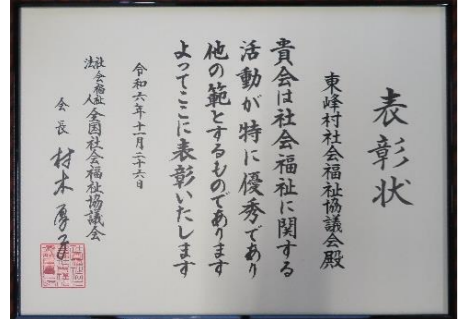 表彰状
東峰村社会福祉協議会殿
貴会は社会福祉に関する
活動が特に優秀であり
他の範とするものであります
よってここに表彰いたします
令和六年十一月二十六日
社会福祉法人全国社会福祉協議会
会長 村木厚子